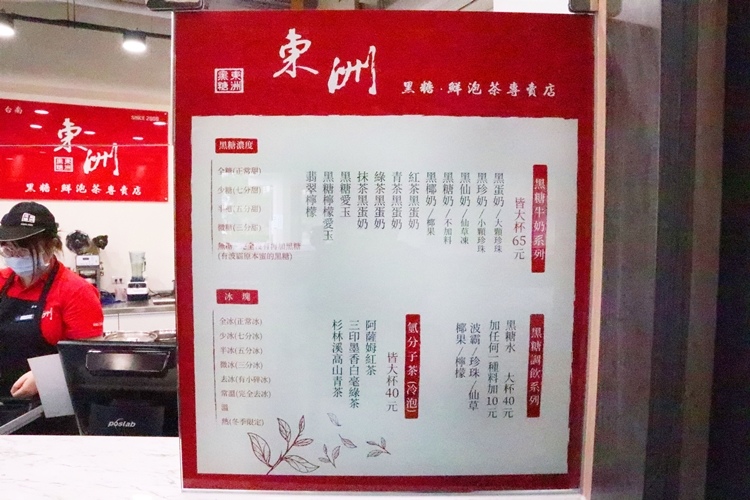 台南
SINCE 2009
東洲
東洲黑糖
黑糖·鮮泡茶專賣店
東洲
東洲黑糖
黑糖·鮮泡茶專賣店
黑糖牛奶系列
皆大杯65元
黑蛋奶/大顆珍珠
黑珍奶/小顆珍珠
黑仙奶/仙草凍
黑糖奶/不加料
黑椰奶/椰果
紅茶黑蛋奶
青茶黑蛋奶
綠茶黑蛋奶
抹茶黑蛋奶
黑糖愛玉
黑糖檸檬愛玉
翡翠檸檬
黑糖調飲系列
黑糖水 大杯40元
加任何一種料加10元
波霸/珍珠/仙草
椰果/檸檬
氫分子茶(冷泡)
皆大杯40元
阿薩姆紅茶
三印墨香白毫綠茶
杉林溪高山青茶
黑糖濃度
全糖(正常甜)
少糖(七分甜)
半糖(五分甜)
微糖(三分甜)
(有波霸原本蜜的黑糖)
冰塊
全冰(正常冰)
少冰(七分冰)
半冰(五分冰)
微冰(三分冰)
去冰(有小碎冰)
常溫(完全去冰)
溫
熱(冬季限定)
poslab